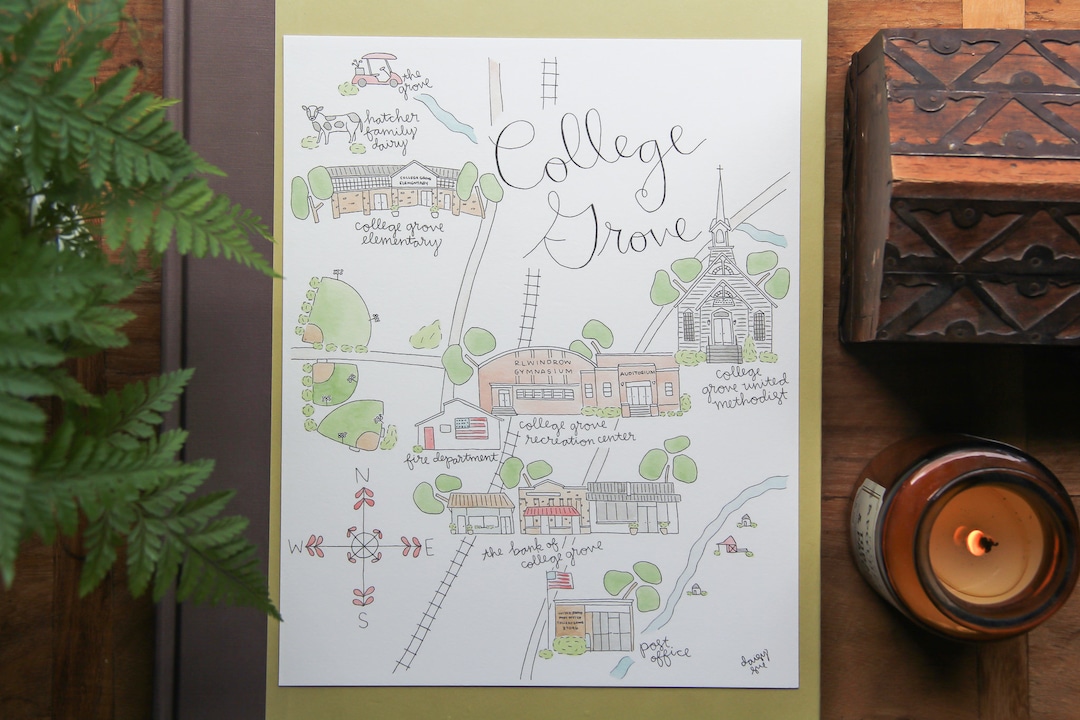 the
grove
hatcher
family
dairy
College
Grove
COLLEGE GROVE
ELEMENTARY
college grove
elementary
R.L.WINDROW
GYMNASIUM
AUDITORIUM
college
grove united
methodist
college grove
recreation center
fire department
N
W E
S
the bank of
college grove
post
office